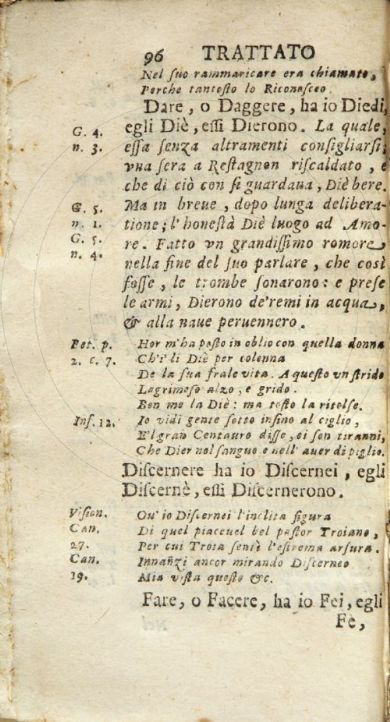 96 TRATTATO
Nel suo rammaricare era chiamato,
Perche tantosto lo Riconosceo.
Dare, o Daggere, ha io Diedi,
G. 4. egli Diè, essi Dierono. La quale,
n. 3. essa senza altramenti consigliarsi,
vna sera a Restagnon riscaldato, e
che di ciò con si guardaua, Diè bere.
G. 5. Ma in breue, dopo lunga delibera-
n. 1. tione; l'honestà Diè luogo ad Amo-
G. 5. re. Fatto vn grandissimo romore
n. 4. nella fine del suo parlare, che così
fosse, le trombe sonarono: e prese
le armi, Dierono de'remi in acqua,
& alla naue peruennero.
Pet. p. Hor m'ha posto in oblio con quella donna
2. c. 7. Ch'i li Diè per colonna
De la sua frale vita. A questo vn strido
Lagrimoso alzo, e grido.
Ben me la Diè: ma tosto la ritolse.
Inf. 12. Io vidi gente sotto infino al ciglio,
E'l gran Centauro disse, ei son tiranni,
Che Dier nel sangue e nell'auer di piglio.
Discernere ha io Discernei, egli
Discernè, essi Discernerono.
Vision. Ou'io Discernei l'inclita figura
Can. Di quel piaceuel bel pastor Troiano,
27. Per cui Troia sentì l'estrema arsura.
Can. Innanzi ancor mirando Discerneo
19. Mia vista questo &c.
Fare, o Facere, ha io Fei, egli
Fè,